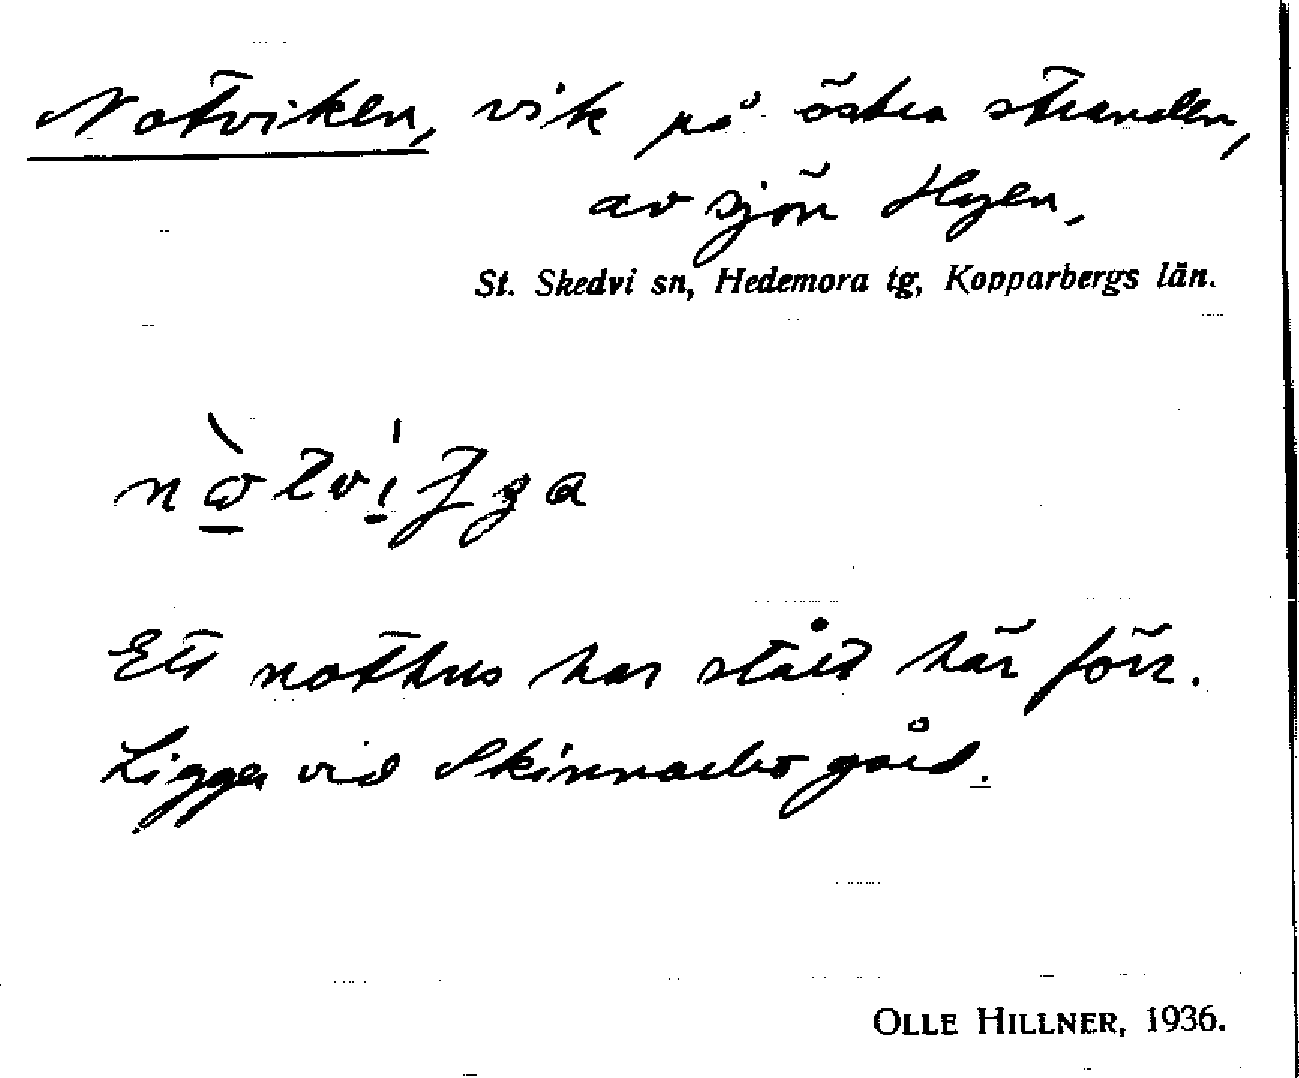 Notviken, vik på östra stranden,
av sjön Hyen,
St. Skedvi sn, Hedemora tg, Kopparbergs län.
Ett nothus har stått här förr.
Ligger vid Skinnarbo gård.
OLLE HILLNER, 1936.